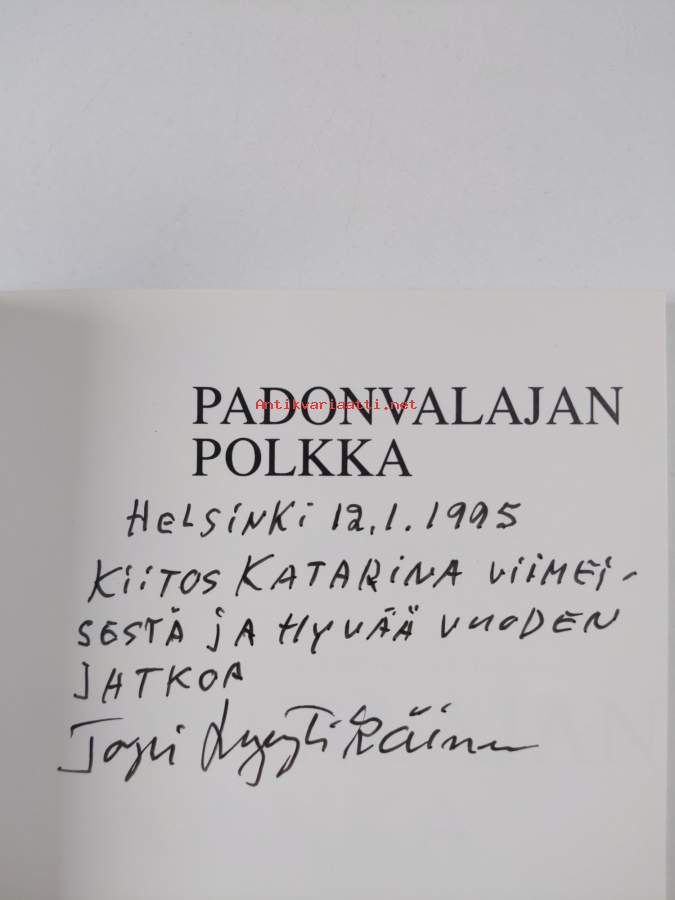 PADONVALAJAN
Antikvariaatti.net
POLKKA
HELSINKI 12.1.1995
KIITOS KATARINA VIIMEI-
SESTÄ JA HYVÄÄ VUODEN
JATKOA
Lyytikäinen